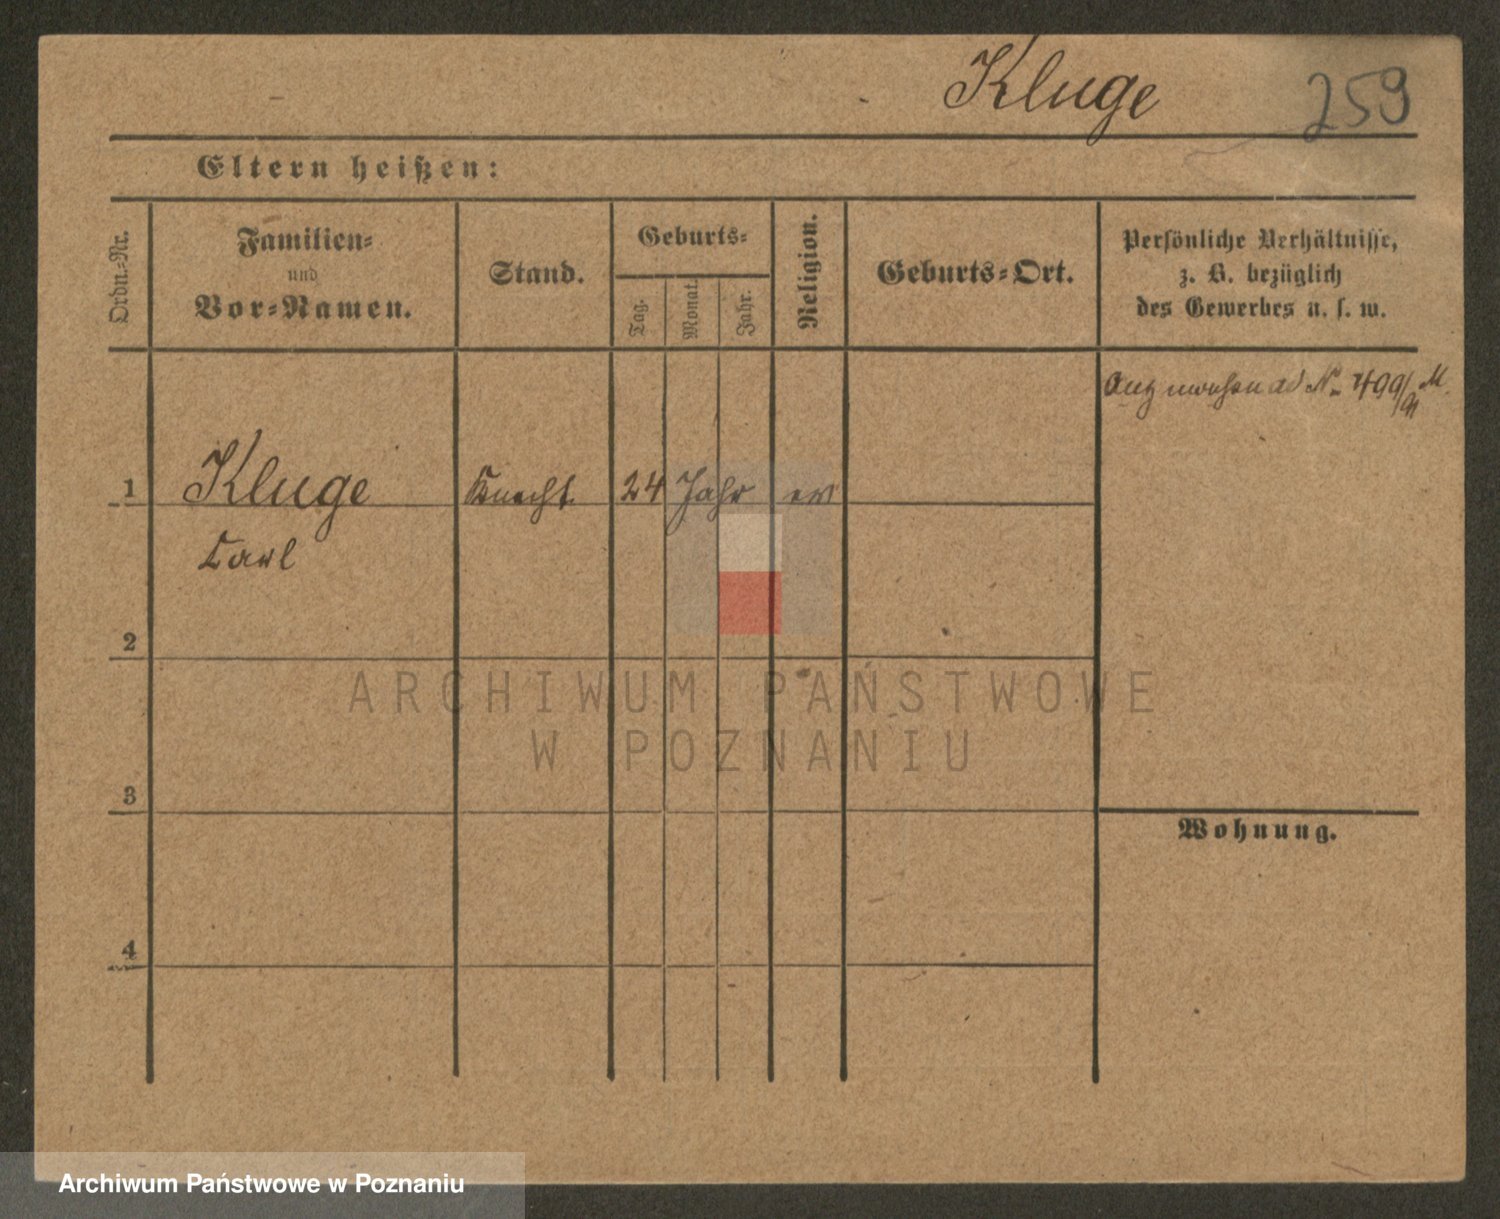 Kluge 259
Eltern heißen:
Ordn.-Nr.
Familien-
und
Vor-Namen.
Stand.
Geburts-
Tag.
Monat.
Jahr.
Religion.
Geburts-Ort.
Persönliche Verhältnisse,
z. B. bezüglich
des Gewerbes u. s. w.
ad No
1 Kluge Knecht 24 Jahr ev
Carl
2
3
4
Wohnung.
ARCHIWUM PAŃSTWOWE
W POZNANIU
Archiwum Państwowe w Poznaniu